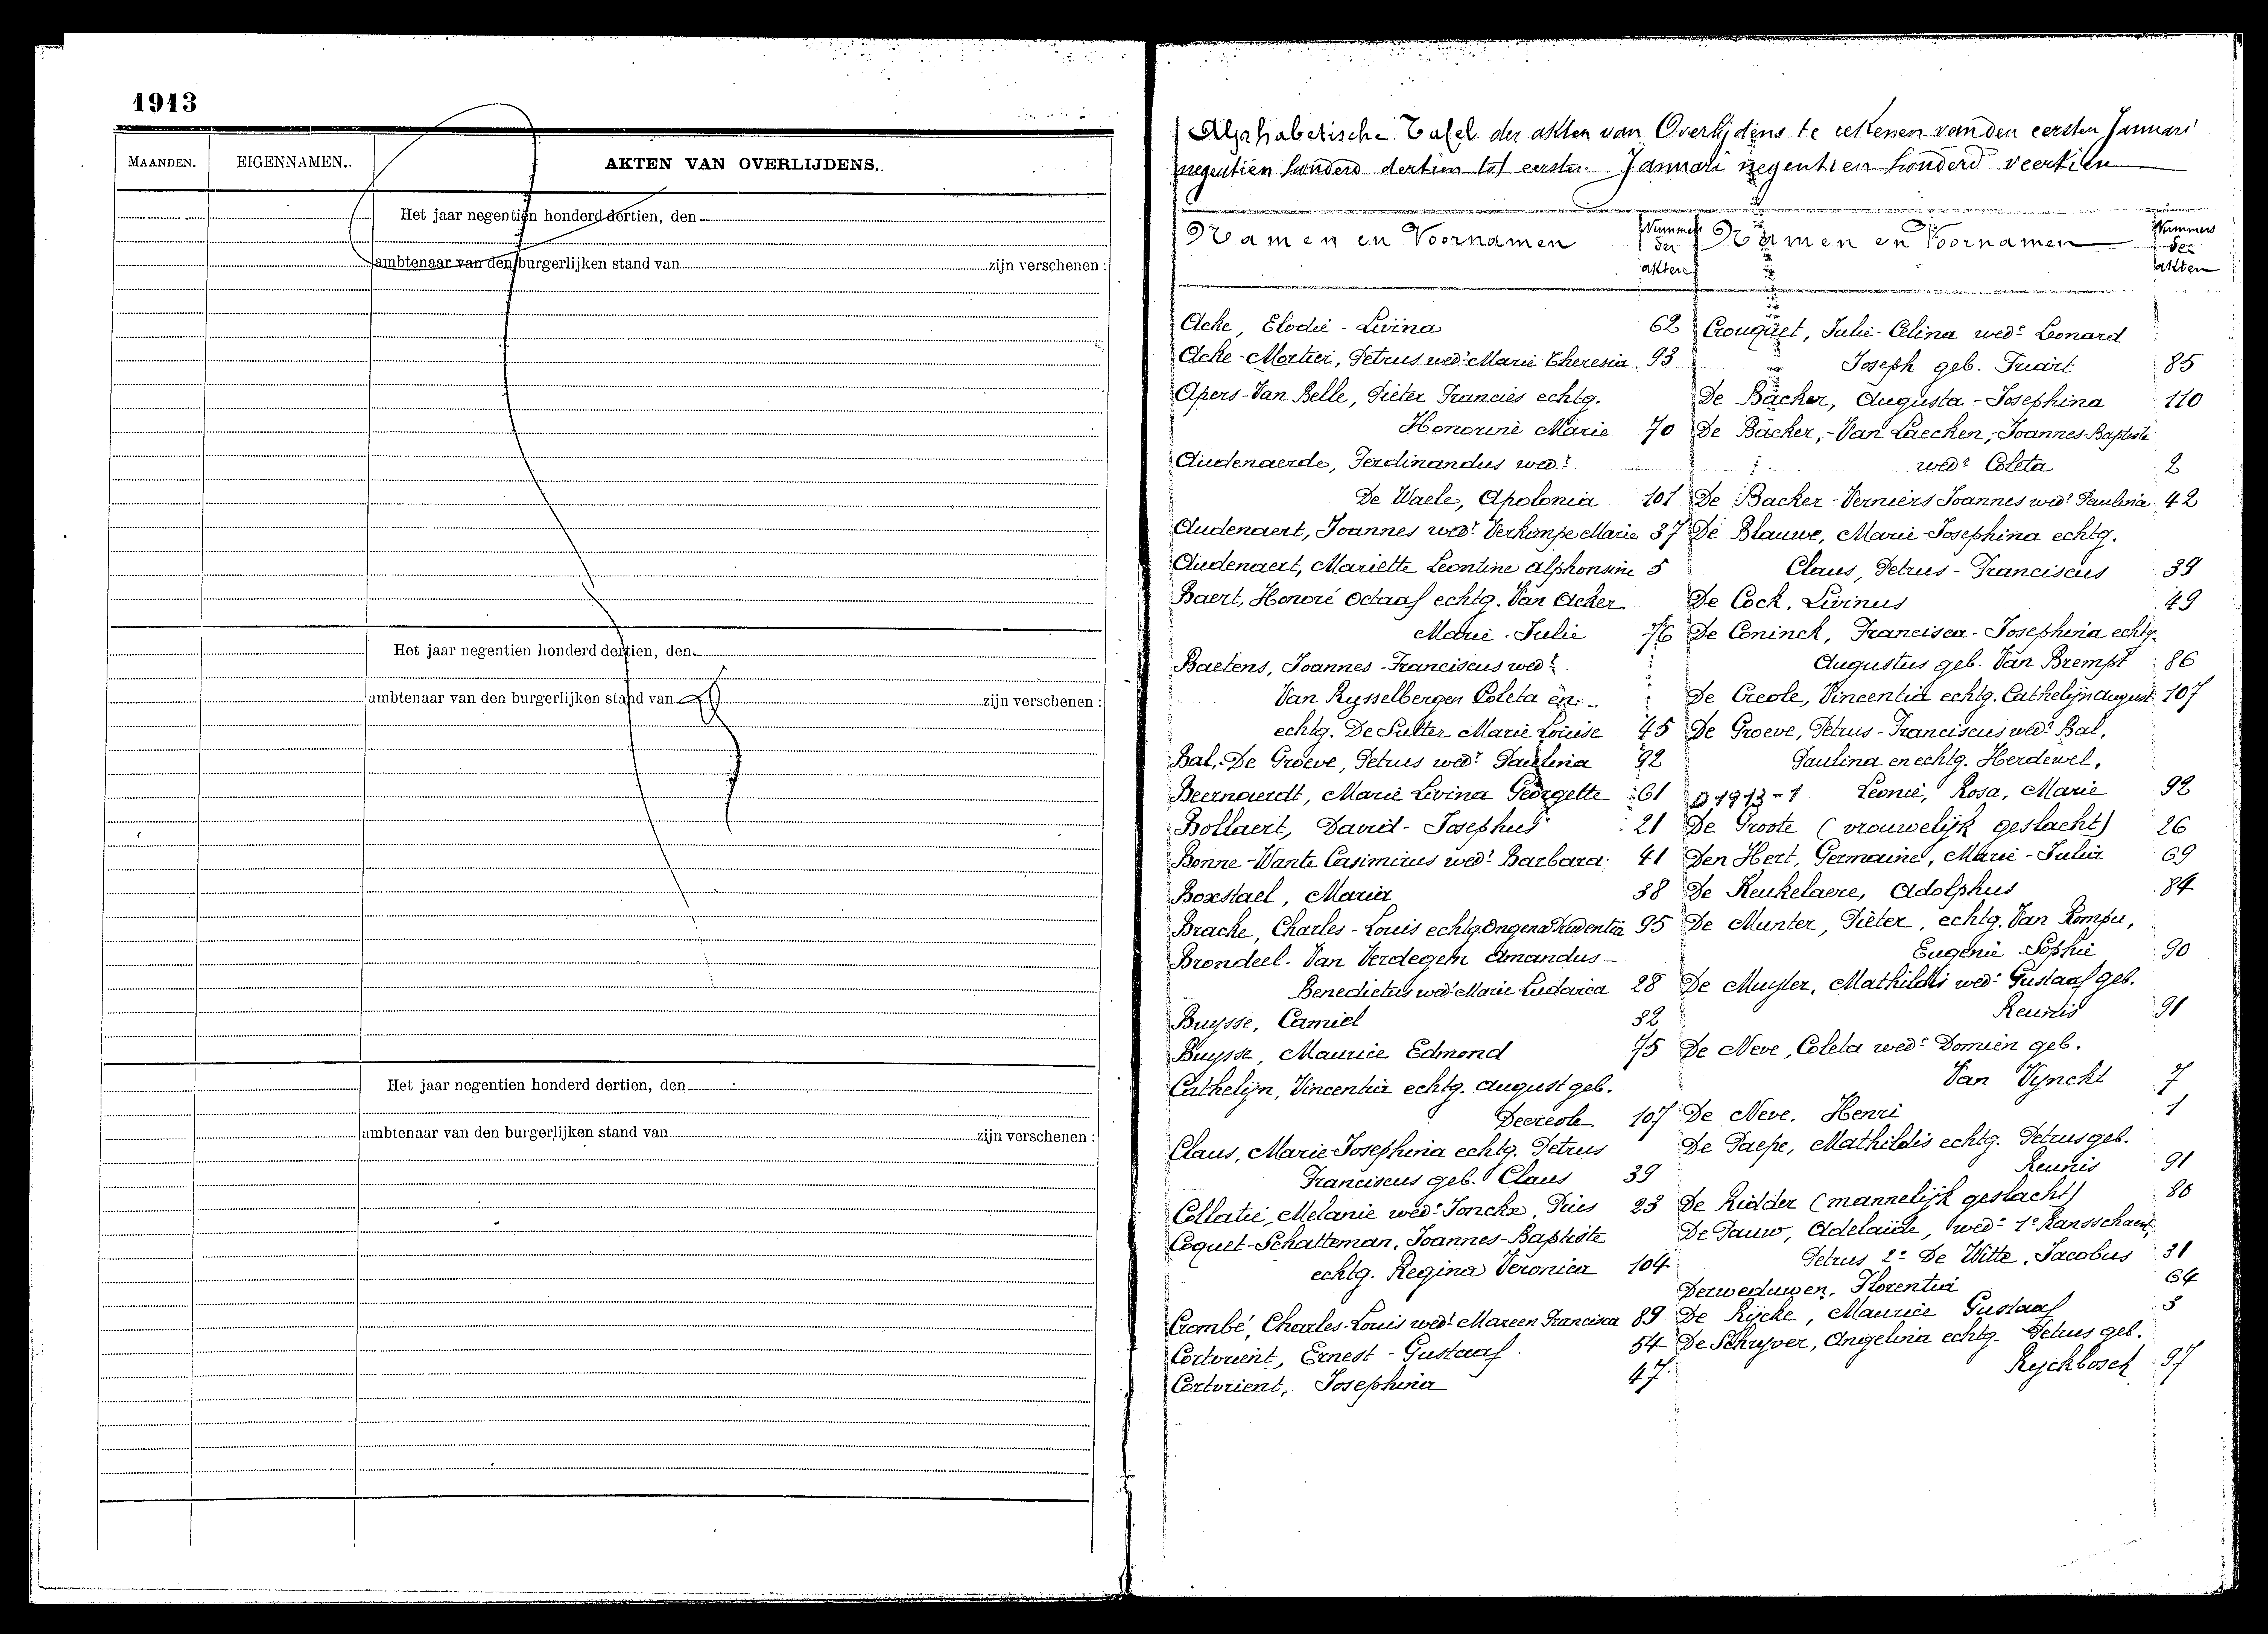 1913
MAANDEN. EIGENNAMEN. AKTEN VAN OVERLIJDENS.
Het jaar negentien honderd dertien, den
ambtenaar van den burgerlijken stand van zijn verschenen :
Het jaar negentien honderd dertien, den
ambtenaar van den burgerlijken stand van zijn verschenen :
Het jaar negentien honderd dertien, den
ambtenaar van den burgerlijken stand van zijn verschenen :
Alphabetische Tafel der akten van Overlijdens te rekenen van den eersten Januari
negentien honderd dertien tot eersten Januari negentien honderd veertien
Namen en Voornamen
Nummers
der
akten
Acke, Elodie - Livina 62
Acke-Mortier, Petrus wedr Marie Theresia 93
Apers-Van Belle, Pieter Francies echtg.
Honorine Marie 70
Audenaerde, Ferdinandus wedr
De Waele, Apolonia 101
Audenaert, Joannes wedr Verkimpe Marie 37
Audenaert, Mariette Leontine Alphonsine 5
Baert, Honoré Octaaf echtg. Van Acker
Marie-Julie 76
Baetens, Joannes-Franciscus wedr
Van Rysselbergen Coleta en
echtg. De Sutter Marie Louise 45
Bal,-De Groeve, Petrus wedr Paulina 92
Beernaerdt, Marie Livina Georgette 61
Bollaert, David-Josephus 21
Bonne-Wante Casimirus wedr Barbara 41
Boxstael, Maria 38
Bracke, Charles-Louis echtg. Ongena Prudentia 95
Brondeel-Van Verdegem Amandus-
Benedictus wedr Marie Ludovica 28
Buysse, Camiel 32
Buysse, Maurice Edmond 75
Cathelijn, Vincentia echtg. August geb.
Decreole 107
Claus, Marie-Josephina echtg. Petrus
Franciscus geb. Claus 39
Collatie, Melanie wedr Jonckx, Pries 23
Coquet-Schatteman, Joannes-Baptiste
echtg. Regina Veronica 104
Crombé, Charles-Louis wedr Mareen Francisca 89
Cortvrient, Ernest-Gustaaf 54
Cortvrient, Josephina 47
Namen en Voornamen
Nummers
der
akten
Crouquet, Julie-Celina wedr Leonard
Joseph geb. Truart 85
De Backer, Augusta-Josephina 110
De Backer,-Van Laecken, Joannes-Baptiste
wedr Coleta 2
De Backer-Verniers Joannes wedr Paulina 42
De Blauwe, Marie-Josephina echtg.
Claus, Petrus-Franciscus 39
De Cock, Livinus 49
De Coninck, Francisca-Josephina echtg.
Augustus geb. Van Brempt 86
De Creole, Vincentia echtg. Cathelijn August 107
De Groeve, Petrus-Franciscus wedr Bal,
Paulina en echtg. Herdewel,
D 1913-1 Leonie, Rosa, Marie 92
De Groote (vrouwelijk geslacht) 26
Den Hert, Germaine, Marie-Julia 69
De Keukelaere, Adolphus 84
De Munter, Pieter, echtg. Van Rompu,
Eugenie-Sophie 90
De Muyter, Mathildis wedr Gustaaf geb.
Reunis 91
De Neve, Coleta wedr Domien geb.
Van Vynckt 7
De Neve, Henri 1
De Paepe, Mathildis echtg. Petrus geb.
Reunis 91
De Ridder (mannelijk geslacht) 80
De Pauw, Adelaide, wedr 1e Ransschaert,
Petrus 2e De Witte, Jacobus 31
Derweduwen, Florentia 64
De Rijcke, Maurice Gustaaf 3
De Schryver, Angelina echtg. Petrus geb.
Ryckbosch 97